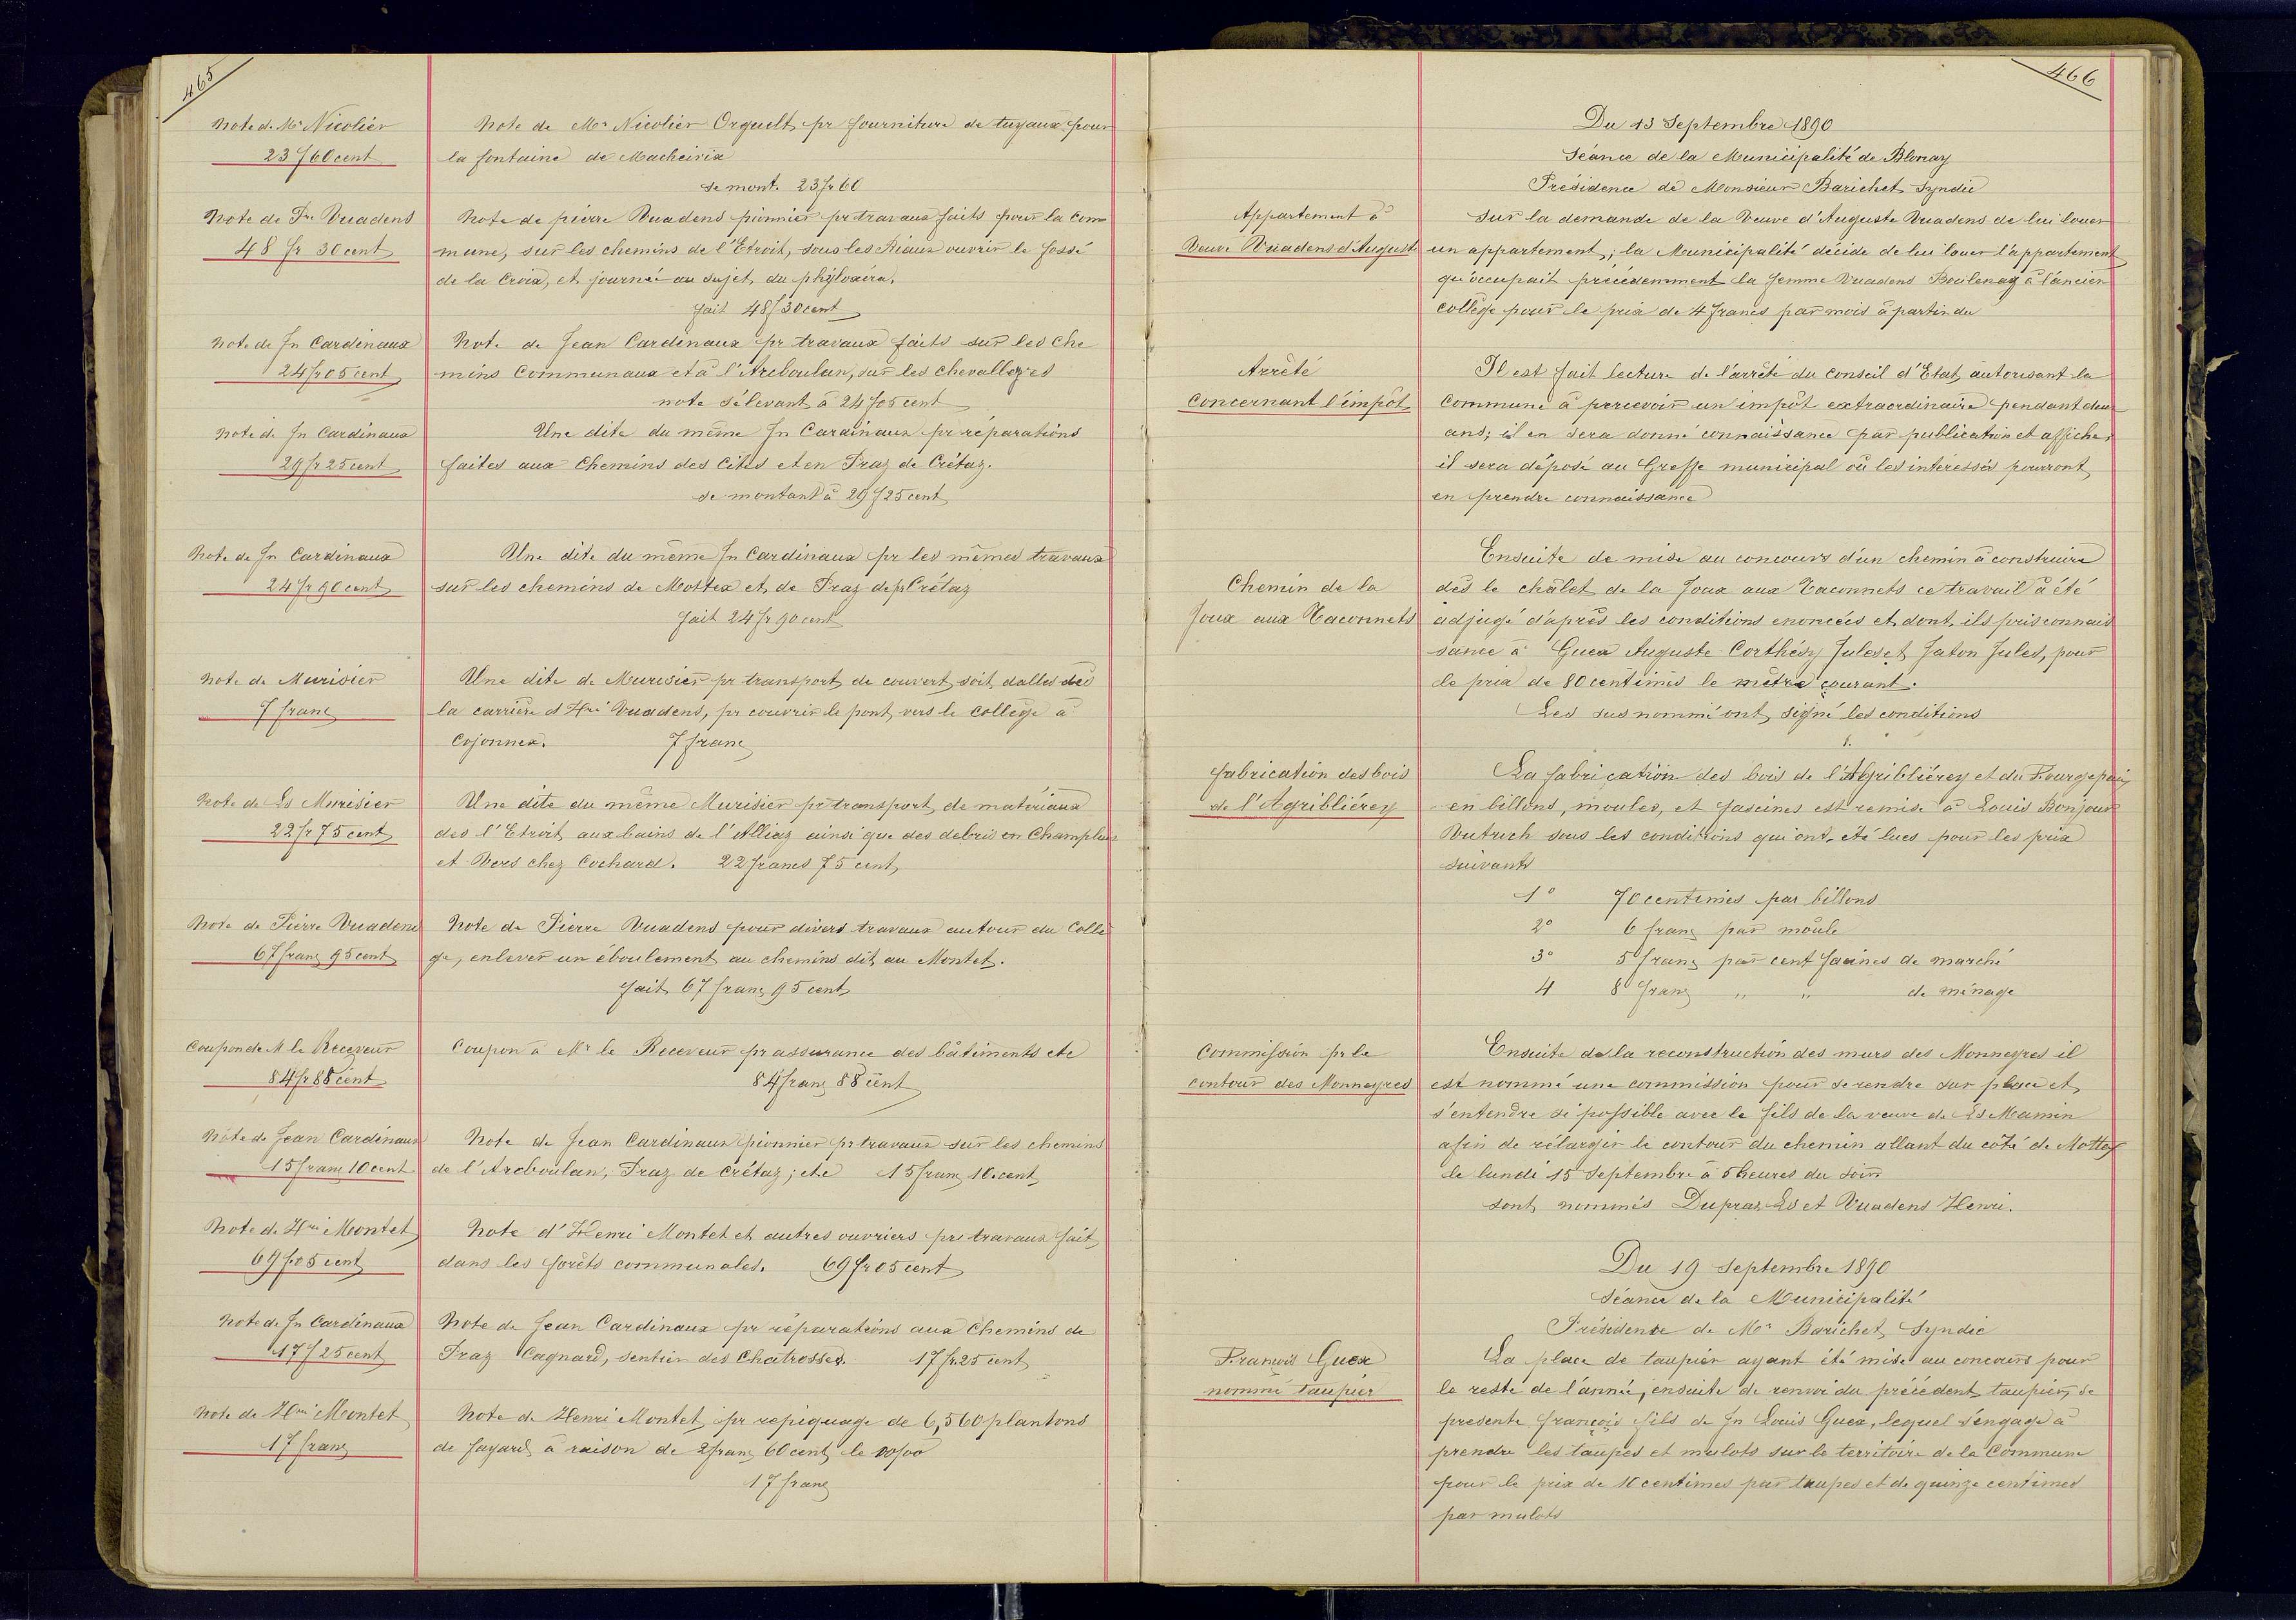 465
Note de Mr Nicolier
23 f 60 cent
Note de Mr Nicolier Orguelt pr fourniture de tuyaux pour
la fontaine de Macheirix
se mont. 23 fr 60
Note de Pre Vuadens
48 fr 30 cent
Note de pierre Vuadens pionnier pr travaux faits pour la com
mune, sur les chemins de l'Etroit, sous les Riaux ouvrir le fossé
de la Croix, et journée au sujet du phyloxéra.
fait 48 f 30 cent
Note de Jn Cardinaux
24 fr 05 cent
Note de Jean Cardinaux pr travaux faits sur les che
mins Communaux et à l'Arcboulan, sur les chevalleyres
note s'élevant à 24 f 05 cent
Note de Jn Cardinaux
29 fr 25 cent
Une dite du même Jn Cardinaux pr réparations
faites aux Chemins des Cités et en Praz de Crétaz.
se montant à 29 f 25 cent
Note de Jn Cardinaux
24 fr 90 cent
Une dite du même Jn Cardinaux pr les mêmes travaux
sur les chemins de Mottex et de Praz de Crétaz
fait 24 fr 90 cent
Note de Murisier
7 franc
Une dite de Murisier pr transport de couvert soit dalles dès
la carrière d'Hri Vuadens, pr couvrir le pont vers le collège à
Cojonnex. 7 franc
Note de Ls Murisier
22 fr 75 cent
Une dite du même Murisier pr transport de matériaux
des l'Etroit aux bains de l'Alliaz ainsi que des debris en Champlan
et Vers chez Cochard. 22 francs 75 cent
Note de Pierre Vuadens
67 franc 95 cent
Note de Pierre Vuadens pour divers travaux autour du Collè
ge, enlever un éboulement au chemins dit au Montet.
fait 67 franc 95 cent
Coupon de M le Receveur
84 fr 88 cent
Coupon à Mr le Receveur pr assurance des bâtiments etc
84 franc 88 cent
Note de Jean Cardinaux
15 franc 10 cent
Note de Jean Cardinaux pionnier pr travaux sur les chemins
de l'Arcboulan, Praz de Crétaz; etc 15 franc 10 cent
Note de Hri Montet
69 f 05 cent
Note d'Henri Montet et autres ouvriers pr travaux fait
dans les forêts communales. 69 fr 05 cent
Note de Jn Cardinaux
17 f 25 cent
Note de Jean Cardinaux pr réparations aux Chemins de
Praz Cagnard, sentier des Chatrosses. 17 fr. 25 cent
Note de Hri Montet
17 franc
Note de Henri Montet pr repiquage de 6,560 plantons
de fayard à raison de 2 franc 60 cent le 00/00
17 franc
466
Du 13 Septembre 1890
Séance de la Municipalité de Blonay
Présidence de Monsieur Barichet Syndic
Appartement à
Veuve Vuadens d'Auguste
Sur la demande de la Veuve d'Auguste Vuadens de lui louer
un appartement; la Municipalité décide de lui louer l'appartement
qu'occupait précédemment la femme Vuadens Boulenaz à l'ancien
Collège pour le prix de 4 francs par mois à partir du
Arrêté
Concernant l'impôt
Il est fait lecture de l'arrêté du Conseil d'Etat autorisant la
Commune à percevoir un impôt extraordinaire pendant deux
ans; il en sera donné connaissance par publication et affiche;
il sera déposé au Greffe municipal où les intéressés pourront
en prendre connaissance
Chemin de la
Joux aux Taconnets
Ensuite de mise au concours d'un chemin à construire
dès le châlet de la Joux aux Taconnets ce travail a été
adjugé d'après les conditions enoncées et dont ils pris connais
sance à Guex Auguste Corthésy Jules et Jaton Jules, pour
le prix de 80 centimes le mètre courant.
Les sus nommé ont signé les conditions
fabrication des bois
de l'Agribliérey
La fabrication des bois de l'Agribliérey et du
en billons, moules, et fascines est remise à Louis Bonjour
Vutrich sous les conditions qui ont été lues pour les prix
suivants
1° 70 centimes par billons
2° 6 franc par moûle
3° 5 franc par cent facines de marché
4 8 franc " " de ménage
Commission pr le
contour des Monneyres
Ensuite de la reconstruction des murs des Monneyres il
est nommé une commission pour se rendre sur place et
s'entendre si possible avec le fils de la veuve de Ls Mamin
afin de rélargir le contour du chemin allant du côté de Mottex
le lundi 15 Septembre à 5 heures du soir
sont nommés Dupraz Ls et Vuadens Henri.
Du 19 Septembre 1890
Séance de la Municipalité
Présidence de Mr Barichet Syndic
François Guex
nommé taupier
La place de taupier ayant été mise au concours pour
le reste de l'année, ensuite de renvoi du précédent taupier, se
presente françois fils de Jn Louis Guex, lequel s'engage à
prendre les taupes et mulots sur le territoire de la Commune
pour le prix de 10 centimes par taupes et de quinze centimes
par mulots